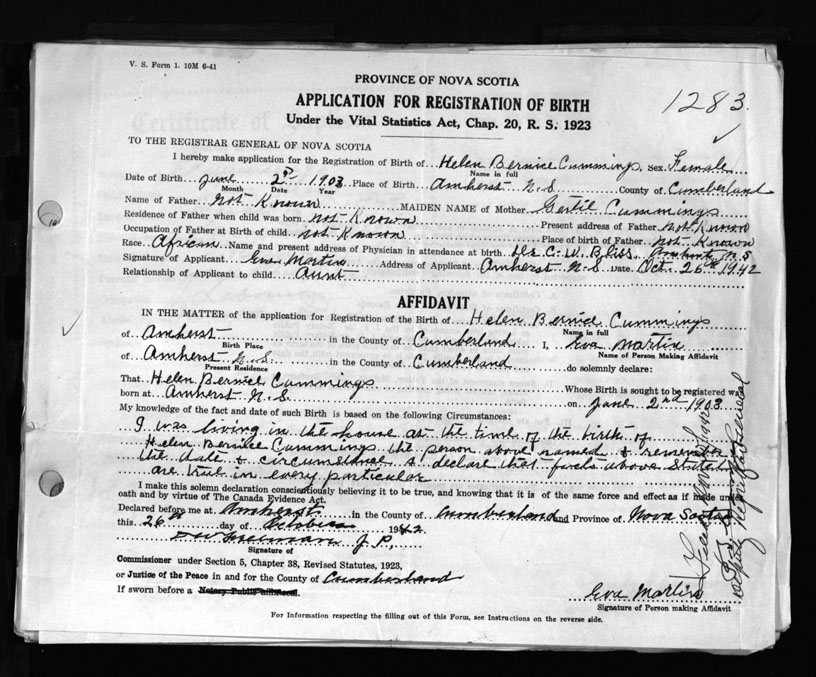 V. S. Form 1. 10M 6-41
PROVINCE OF NOVA SCOTIA
1283.
APPLICATION FOR REGISTRATION OF BIRTH
Under the Vital Statistics Act, Chap. 20, R. S. 1923
TO THE REGISTRAR GENERAL OF NOVA SCOTIA
I hereby make application for the Registration of Birth of Helen Bernice Cummings, sex Female
Name in full
Date of Birth June 2nd 1903 Place of Birth Amherst N.S. County of Cumberland
Month Date Year
Name of Father Not Known MAIDEN NAME of Mother Gertie Cummings
Residence of Father when child was born Not Known Present address of Father Not Known
Occupation of Father at Birth of child Not Known Place of birth of Father Not Known
Race African Name and present address of Physician in attendance at birth Dr. C. W. Bliss, Amherst N.S
Signature of Applicant Eva Martin Address of Applicant Amherst N.S. Date Oct. 26th 1942
Relationship of Applicant to child Aunt
AFFIDAVIT
IN THE MATTER of the application for Registration of the Birth of Helen Bernice Cummings
Name in full
of Amherst in the County of Cumberland I, Eva Martin
Birth Place Name of Person Making Affidavit
of Amherst N.S. in the County of Cumberland do solemnly declare:
Present Residence
That Helen Bernice Cummings Whose Birth is sought to be registered was
born at Amherst N.S. on June 2nd 1903
My knowledge of the fact and date of such Birth is based on the following Circumstances:
I was living in the house at the time of the birth of
Helen Bernice Cummings the person above named & remember
the date & circumstance & declare that facts above stated
are true in every particular
I make this solemn declaration conscientiously believing it to be true, and knowing that it is of the same force and effect as if made under
oath and by virtue of The Canada Evidence Act.
Declared before me at Amherst in the County of Cumberland and Province of Nova Scotia
this 26 day of October 1942.
J. P.
Signature of
Commissioner under Section 5, Chapter 38, Revised Statutes, 1923,
or Justice of the Peace in and for the County of Cumberland
If sworn before a Notary Public affix seal.
Eva Martin
Signature of Person making Affidavit
Deputy Registrar General
For Information respecting the filling out of this Form, see Instructions on the reverse side.